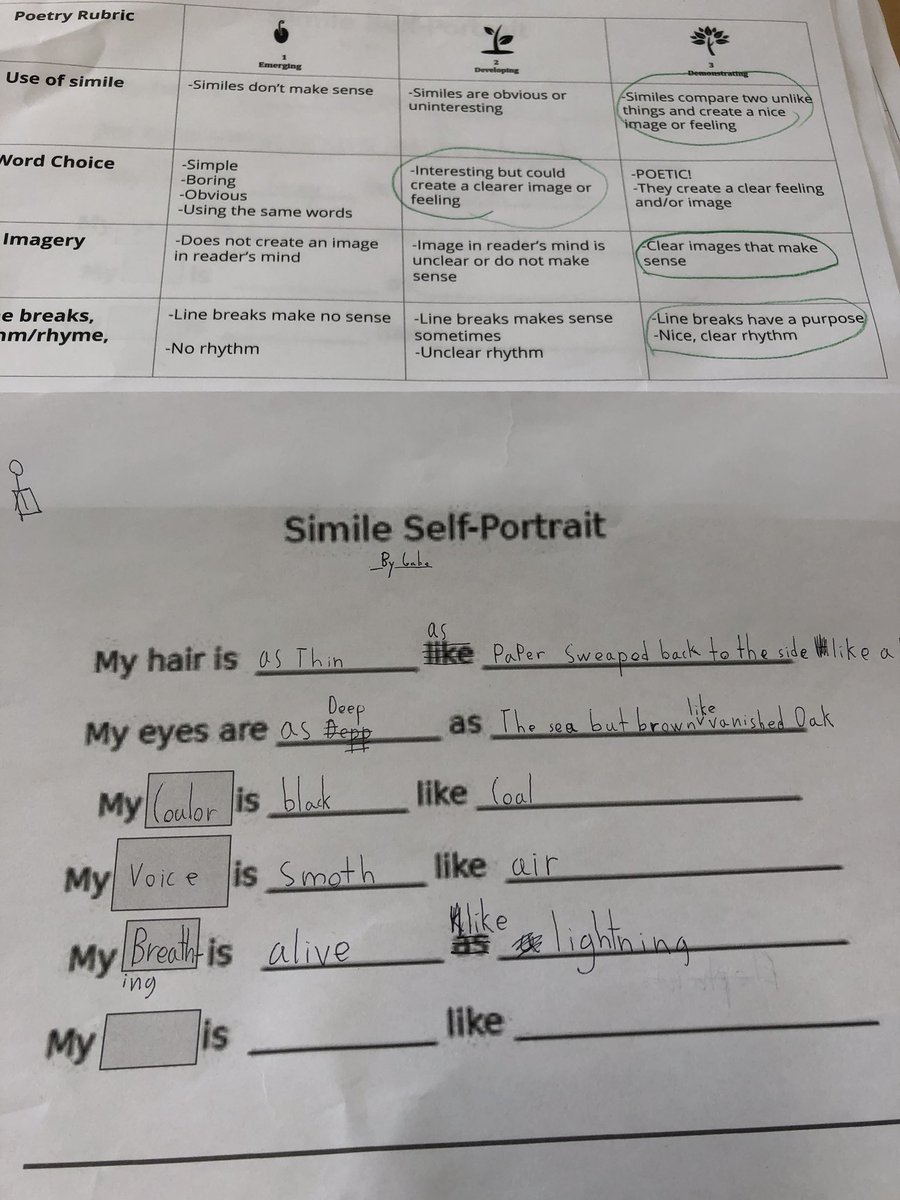 Poetry Rubric
1
Emerging
2
Developing
3
Demonstrating
Use of simile
-Similes don't make sense
-Similes are obvious or
uninteresting
-Similes compare two unlike
things and create a nice
image or feeling
Word Choice
-Simple
-Boring
-Obvious
-Using the same words
-Interesting but could
create a clearer image or
feeling
-POETIC!
-They create a clear feeling
and/or image
Imagery
-Does not create an image
in reader's mind
-Image in reader's mind is
unclear or do not make
sense
-Clear images that make
sense
e breaks,
hm/rhyme,
-Line breaks make no sense
-No rhythm
-Line breaks makes sense
sometimes
-Unclear rhythm
-Line breaks have a purpose
-Nice, clear rhythm
Simile Self-Portrait
By Gabe
My hair is as Thin as like PaPer Sweaped back to the side like a
My eyes are as Deep Depp as The sea but brown like vanished Oak
My Coulor is black like Coal
My Voice is Smoth like air
My Breathing is alive like as lightning
My is like